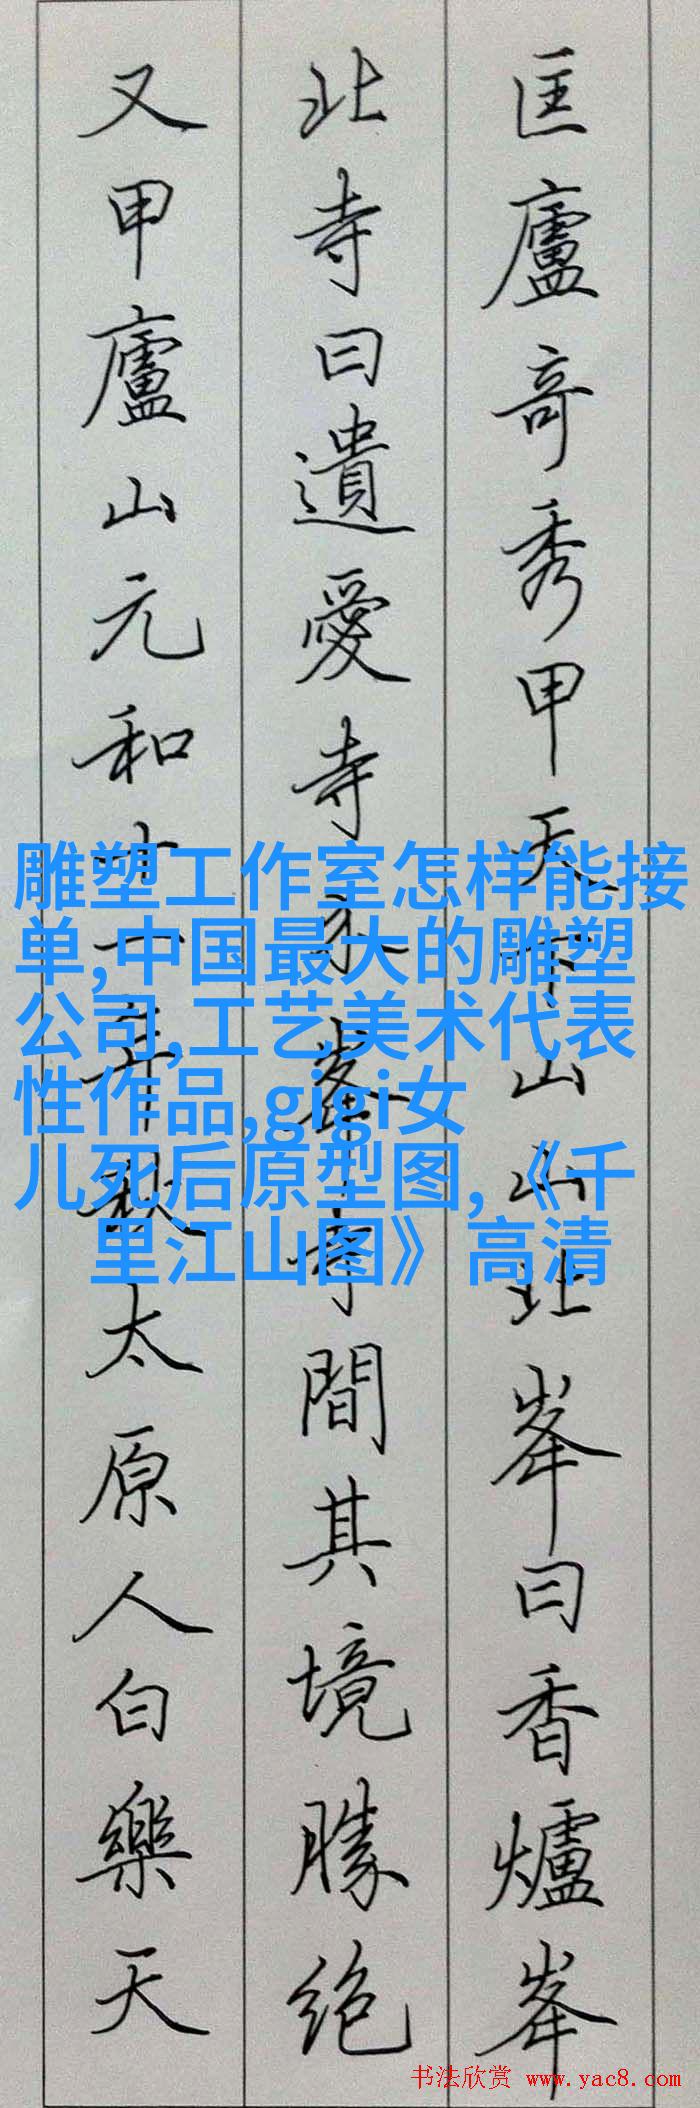 匡廬奇秀甲天下山山北峯曰香爐峯
北寺曰遺愛寺介峯寺間其境勝绝
又甲廬山元和十一年秋太原人白樂天
雕塑工作室怎样能接
单,中国最大的雕塑
公司,工艺美术代表
性作品,gigi女
儿死后原型图,《千
里江山图》高清
书法欣赏 www.yac8.com